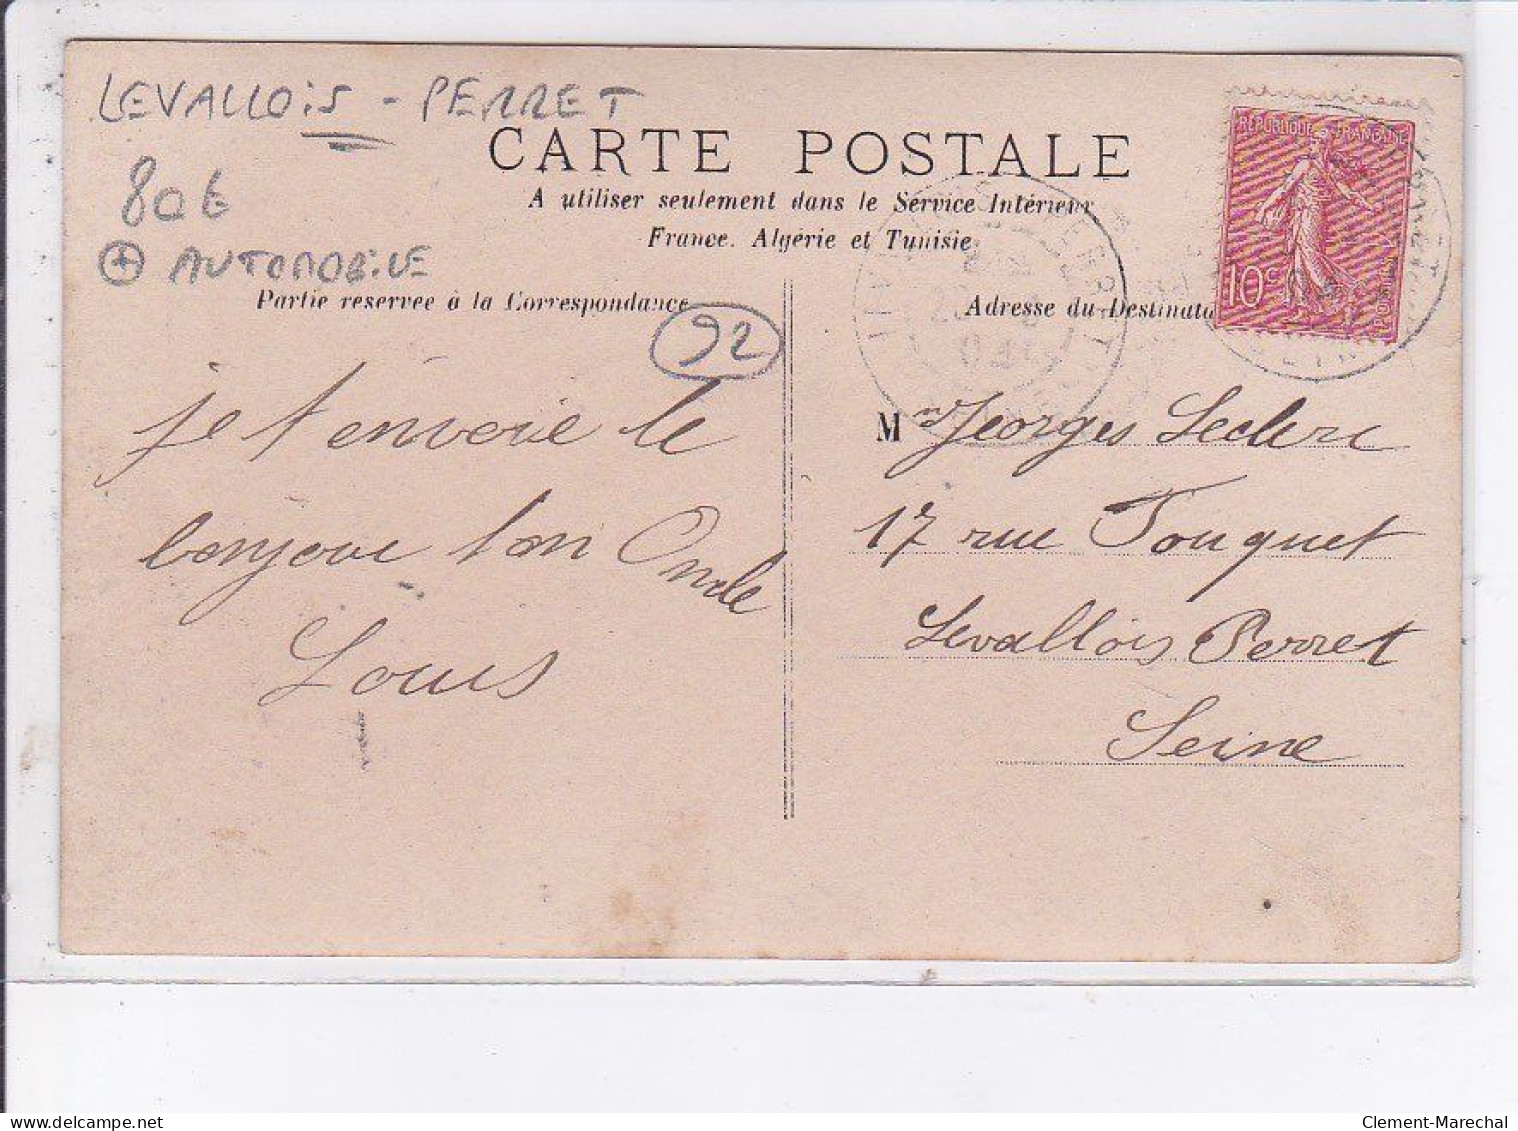 LEVALLOIS - PERRET
80€
+ AUTOMOBILE
CARTE POSTALE
A utiliser seulement dans le Service Intérieur
France, Algérie et Tunisie
Partie reservee à la Correspondance
Adresse du Destinata
92
REPUBLIQUE FRANÇAISE
10c
POSTES
je t envoie le
bonjour ton Oncle
Louis
Mr Georges Leclerc
17 rue Fouquet
Levallois Perret
Seine
delcampe.net
Clement-Marechal